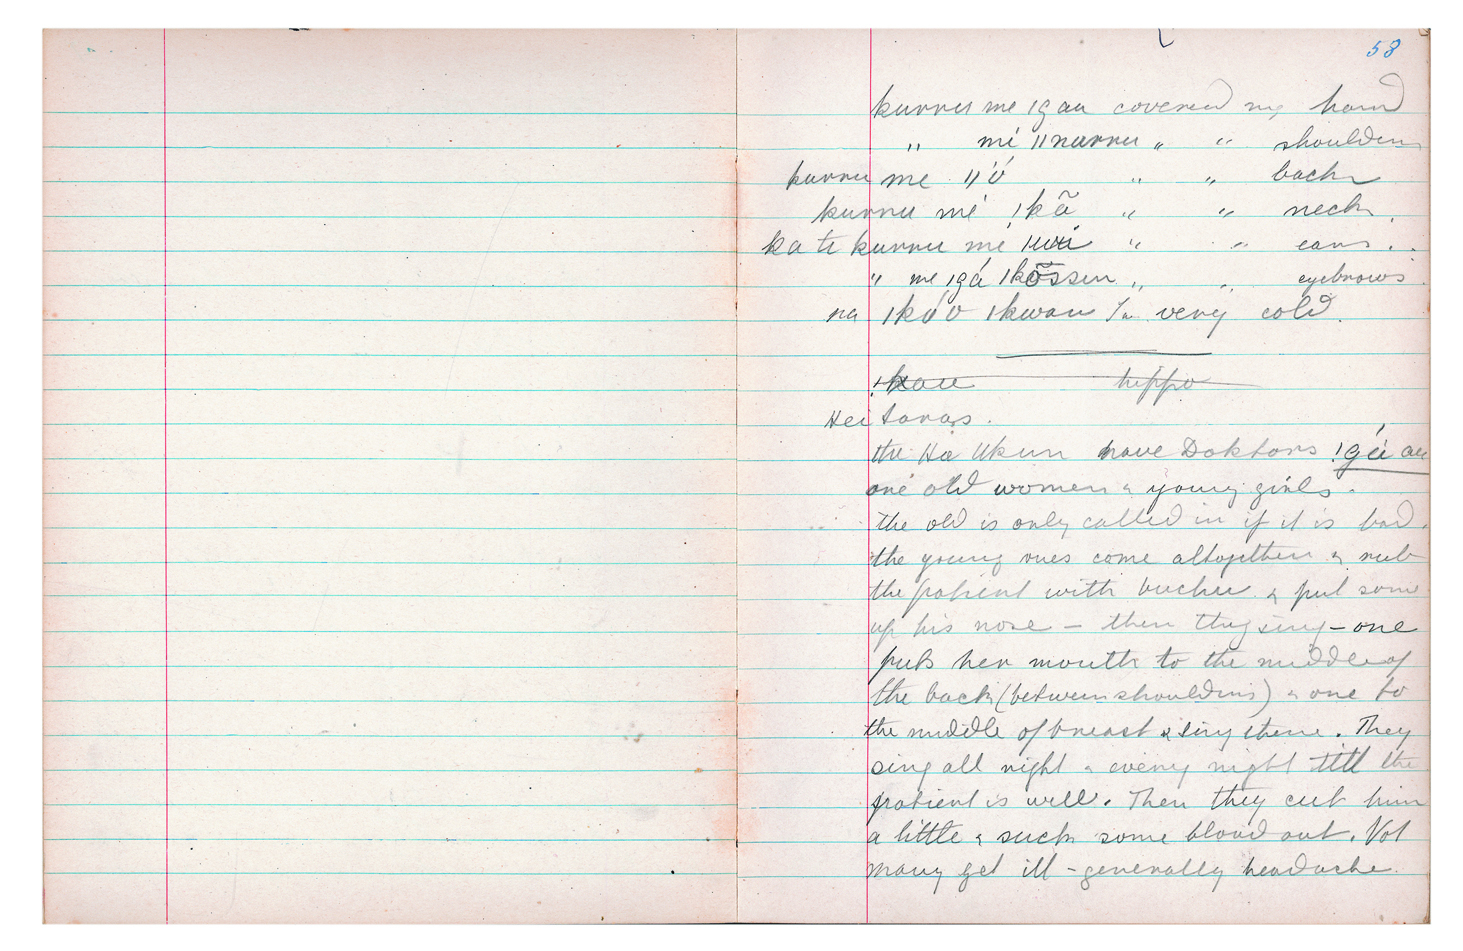 58
kurru me ıgau covered my hand
„ mé ıınurru „ „ shoulders
kurru me ııú „ „ back
kurru mé !kã „ „ neck.
ka te kurru mé „ „ ears.
„ me ıgá „ „ eyebrows.
na ıkwau I'm very cold.
hippo
Hei Saras.
the Ukun have Doktors !géi au
one old women & young girls.
the old is only called in if it is bad.
the young ones come altogether & rub
the patient with buchu & put some
up his nose – then they sing – one
puts her mouth to the middle of
the back (between shoulders) & one to
the middle of breast & sing there. They
sing all night & every night till the
patient is well. Then they cut him
a little & suck some blood out. Not
many get ill – generally headache